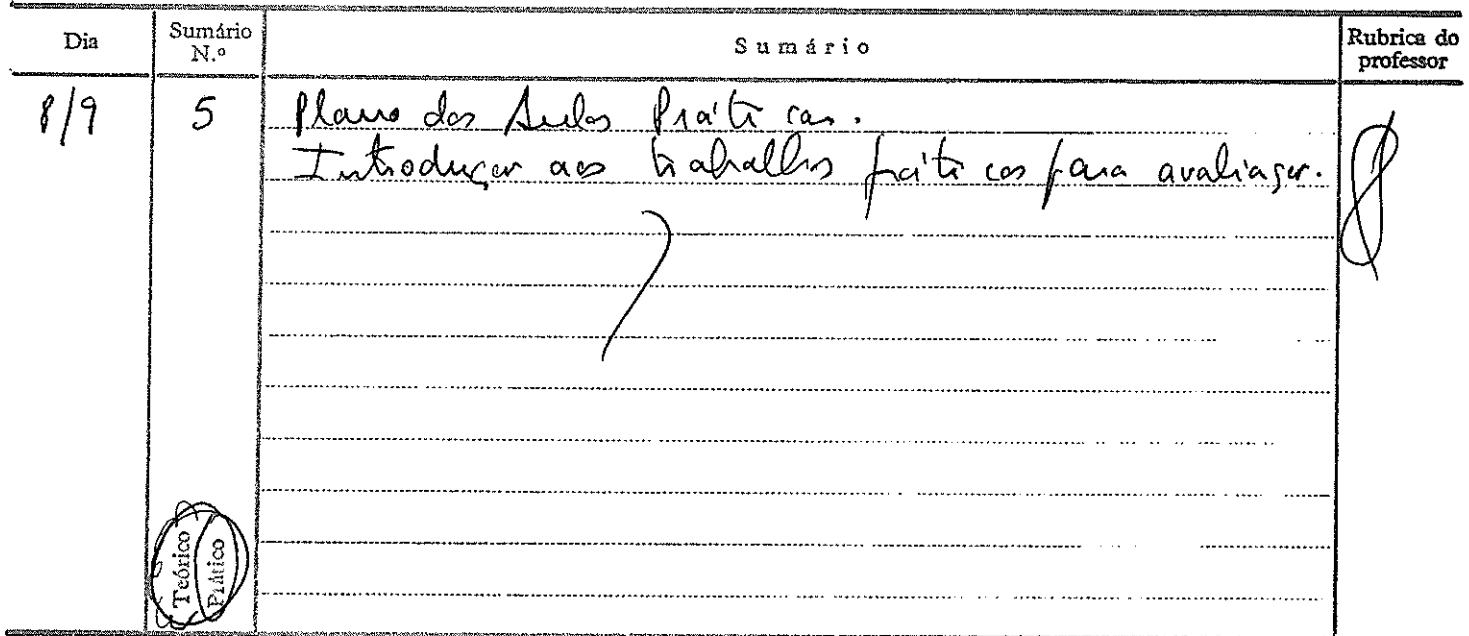 Dia
Sumário N.º
Sumário
Rubrica do professor
8/9
5
Plano das Aulas Práticas.
Introdução aos trabalhos práticos para avaliação.
Teórico
Prático